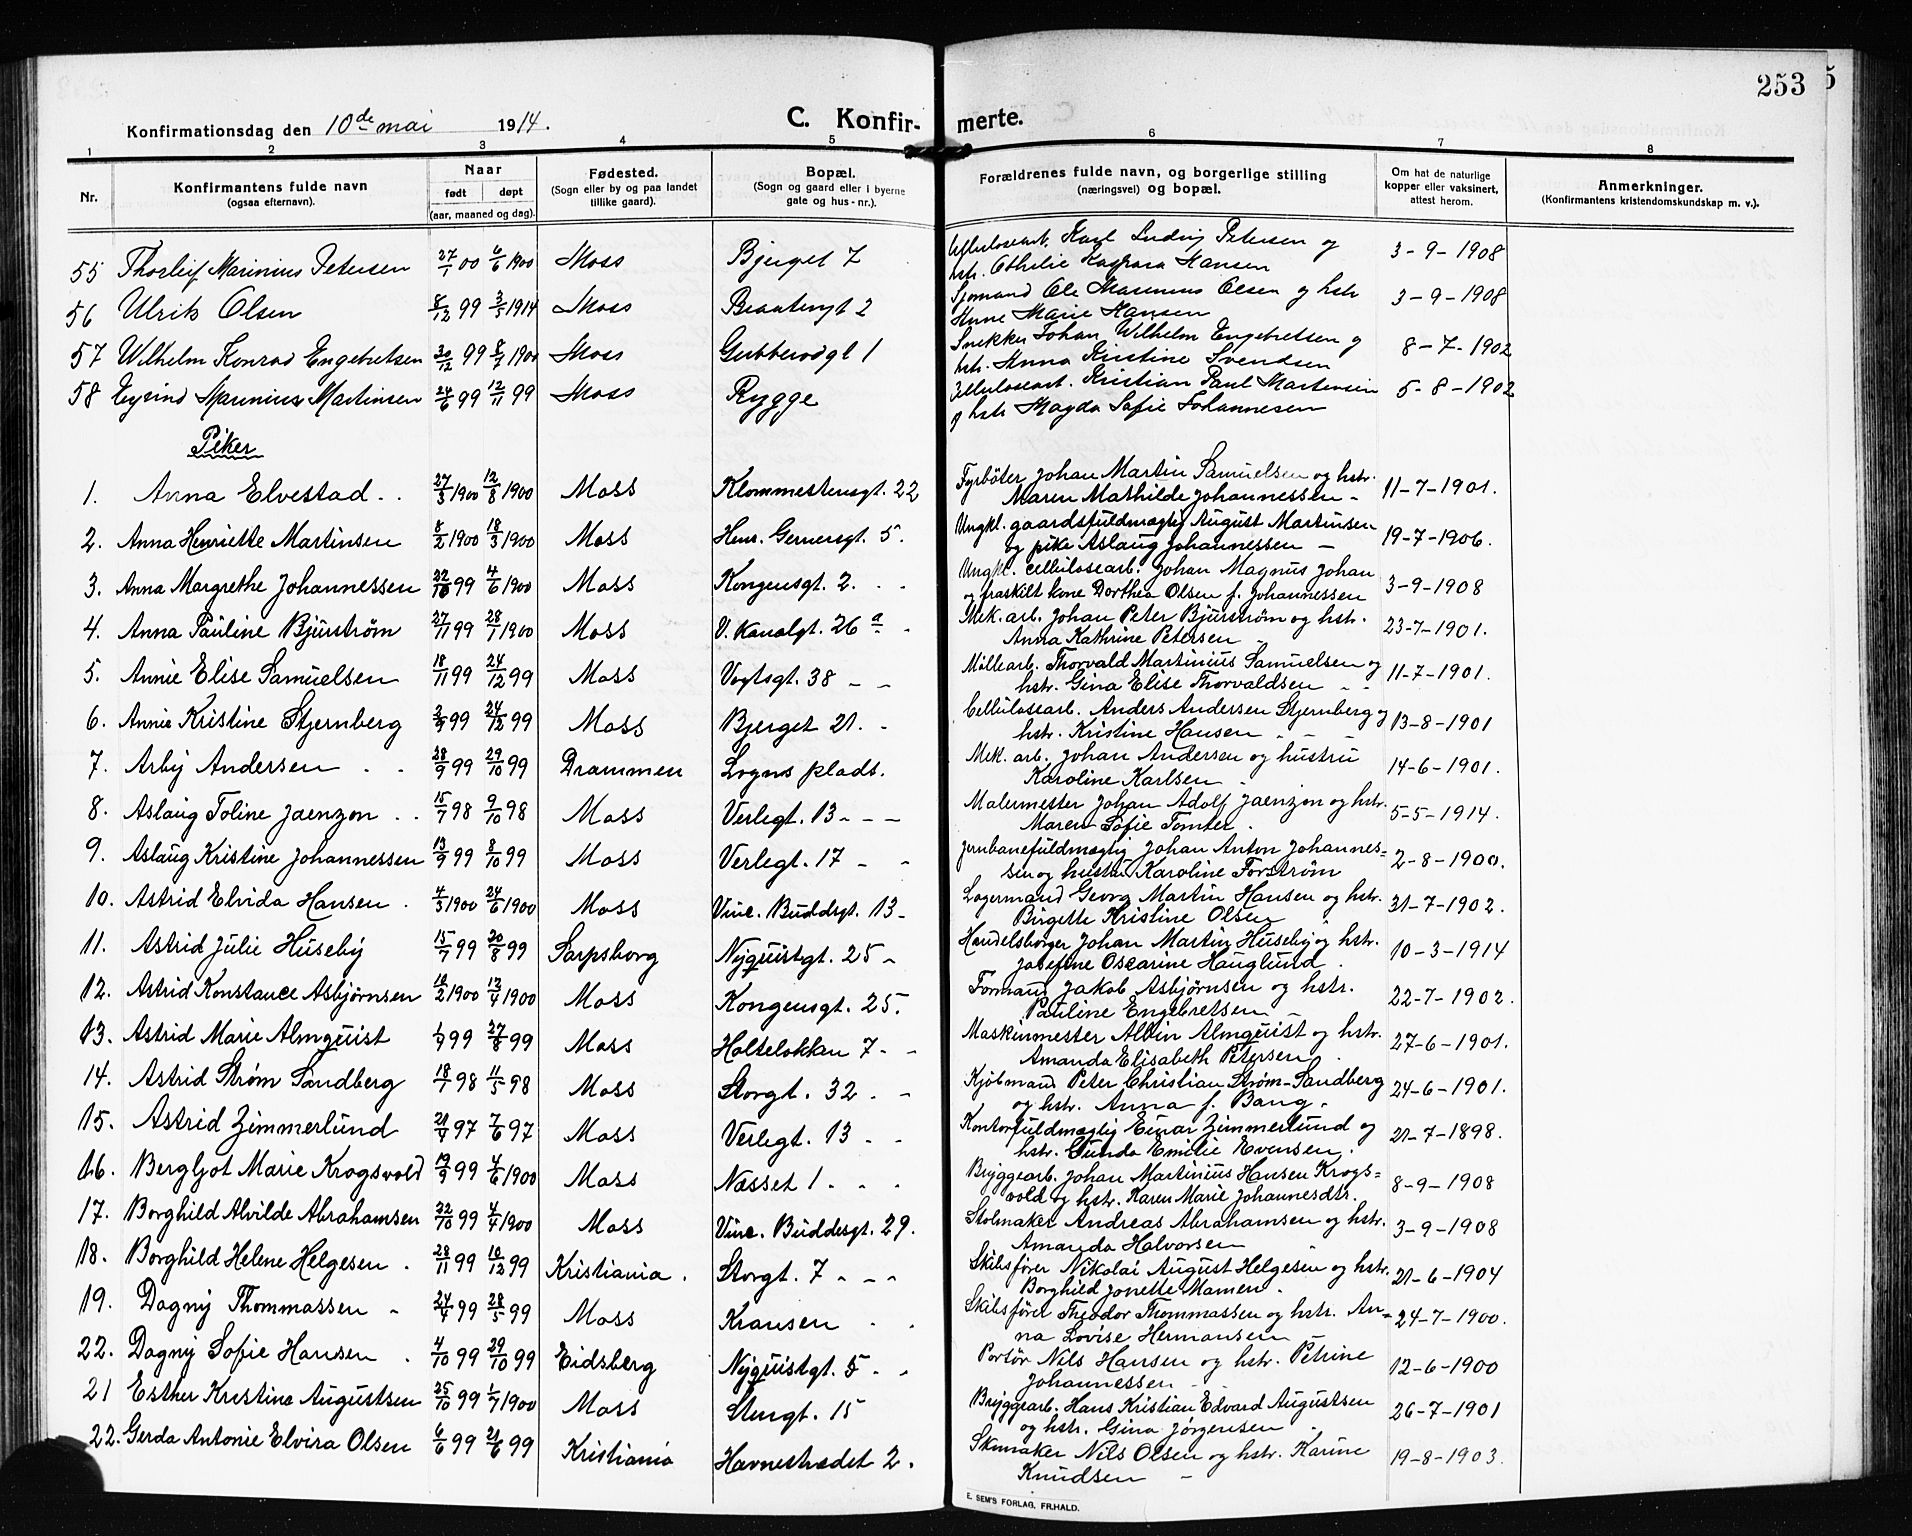 253
Konfirmationsdag den 10de mai 1914. C. Konfirmerte.
1 2 3 4 5 6 7 8
Nr. Konfirmantens fulde navn (ogsaa efternavn). Naar født døpt (aar, maaned og dag). Fødested. (Sogn eller by og paa landet tillike gaard). Bopæl. (Sogn og gaard eller i byerne gate og hus-nr.). Forældrenes fulde navn, og borgerlige stilling (næringsvei) og bopæl. Om hat de naturlige kopper eller vaksinert, attest herom. Anmerkninger. (Konfirmantens kristendomskundskap m. v.).
55 Thorleif Marinius Petersen 27/1 00 6/6 1900 Moss Bjerget 7 Cellulosearb. Karl Ludvig Petersen og hstr. Othelie Kaspara Hansen 3-9-1908
56 Ulrik Olsen 8/12 99 3/5 1914 Moss 2 Sjømand Ole Marenius Olsen og hstr Anne Marie Hansen 3-9-1908
57 Wilhelm Konrad Engebretsen 30/12 99 8/7 1900 Moss Gubberodgt 1 Snekker Johan Wilhelm Engebretsen og hstr. Anna Kristine Svendsen 8-7-1902
58 Eyvind Marinius Martinsen 24/6 99 12/11 99 Moss Rygge Cellulosearb. Kristian Paul Martensen og hstr Magda Sofie Johannesen 5-8-1902
Piker
1. Anna Elvestad 27/3 1900 12/8 1900 Moss Klommestensgt. 22 Fyrbøter Johan Martin Samuelsen og hstr. Maren Mathilde Johannessen 11-7-1901.
2. Anna Henriette Martinsen 8/2 1900 18/3 1900 Moss Henr. Gernersgt. 5. Ungkl. gaardsfuldmægtig August Martinsen og pike Aslaug Johannessen 19-7-1906.
3. Anna Margrethe Johannessen 22/10 99 4/6 1900 Moss Kongensgt. 2. Ungkl. cellulosearb. Johan Magnus Johan og fraskilt kone Dorthea Olsen f. Johannessen 3-9-1908
4. Anna Pauline Bjurstrøm 27/11 99 28/1 1900 Moss V. Kanalgt. 26 a Mek. arb. Johan Peter Bjurstrøm og hstr. Anna Kathrine Petersen 23-7-1901.
5. Annie Elise Samuelsen 18/11 99 24/12 99 Moss Vogtsgt. 38 Møllearb. Thorvald Martinius Samuelsen og hstr. Gina Elise Thorvaldsen 11-7-1901.
6. Annie Kristine Stjernberg 2/9 99 24/12 99 Moss Bjerget 21. Cellulosearb. Anders Andersen Stjernberg og hstr. Kristine Hansen 13-8-1901
7. Arby Andersen 28/9 99 29/10 99 Drammen Logns plads. Mek. arb. Johan Andersen og hustru Karoline Karlsen 14-6-1901.
8. Aslaug Toline Jaenzon 15/7 98 9/10 98 Moss Verlegt. 13 Malermester Johan Adolf Jaenzon og hstr. Maren Sofie Tomter. 5-5-1914.
9. Aslaug Kristine Johannessen 13/9 99 8/10 99 Moss Verlegt. 17 Jernbanefuldmægtig Johan Anton Johannessen og hustru Karoline Forstrøm 2-8-1900.
10. Astrid Elvida Hansen 4/3 1900 24/6 1900 Moss Vinc. Buddsgt. 13 Lagermand Georg Martin Hansen og hstr. Birgitte Kristine Olsen 31-7-1902.
11. Astrid Julie Huseby 15/7 99 20/8 99 Sarpsborg Nyquistgt. 25 Handelsborger Johan Martin Huseby og hstr. Josefine Oscarine Hauglund. 10-3-1914
12. Astrid Konstance Asbjørnsen 10/2 1900 12/4 1900 Moss Kongensgt. 25. Formand Jakob Asbjørnsen og hstr. Pauline Engebretsen 22-7-1902.
13. Astrid Marie Almquist 1/7 99 27/8 99 Moss Holteløkken 7 Maskinmester Albin Almquist og hstr. Amanda Elisabeth Petersen 27-6-1901.
14. Astrid Strøm Sandberg 18/1 98 11/5 98 Moss Storgt. 32 Kjøbmand Peter Christian Strøm-Sandberg og hstr. Anna f. Bang. 24-6-1901.
15. Astrid Zimmerlund 21/4 97 7/6 97 Moss Verlegt. 13 Kontorfuldmægtig Einar Zimmerlund og hstr. Gunda Emilie Evensen. 21-7-1898.
16. Bergljot Marie Krogsvold 19/9 99 4/6 1900 Moss Næsset 1 Bryggearb. Johan Martinius Hansen Krogsvold og hstr. Karen Marie Johannesdtr. 8-9-1908
17. Borghild Alvilde Abrahamsen 22/10 99 4/4 1900 Moss Vinc. Buddesgt. 29. Stolmaker Andreas Abrahamsen og hstr. Amanda Halvorsen 3-9-1908
18. Borghild Helene Helgesen 28/11 99 10/12 99 Kristiania. Storgt. 7 Skibsfører Nikolai August Helgesen og hstr. Borghild Jonette Mamen. 21-6-1904
19. Dagny Thommassen 24/4 99 28/5 99 Moss Kransen Skibsfører Theodor Thommassen og hstr. Anna Lovise Hermansen 24-7-1900.
22. Dagny Sofie Hansen 4/10 99 29/10 99 Eidsberg Nyquistgt. 5 Portør Nils Hansen og hstr. Petrine Johannessen 12-6-1900
21 Esther Kristine Augustsen 25/10 99 1/7 1900 Moss Stengt. 15 Bryggearb. Hans Kristian Edvard Augustsen og hstr. Gina Jørgensen 26-7-1901
22. Gerda Antonie Elvira Olsen 6/6 99 21/6 99 Kristiania Havnestrædet 2. Skomaker Nils Olsen og hstr. Karine Knudsen 19-8-1903.
E. SEM'S FORLAG, FR.HALD.